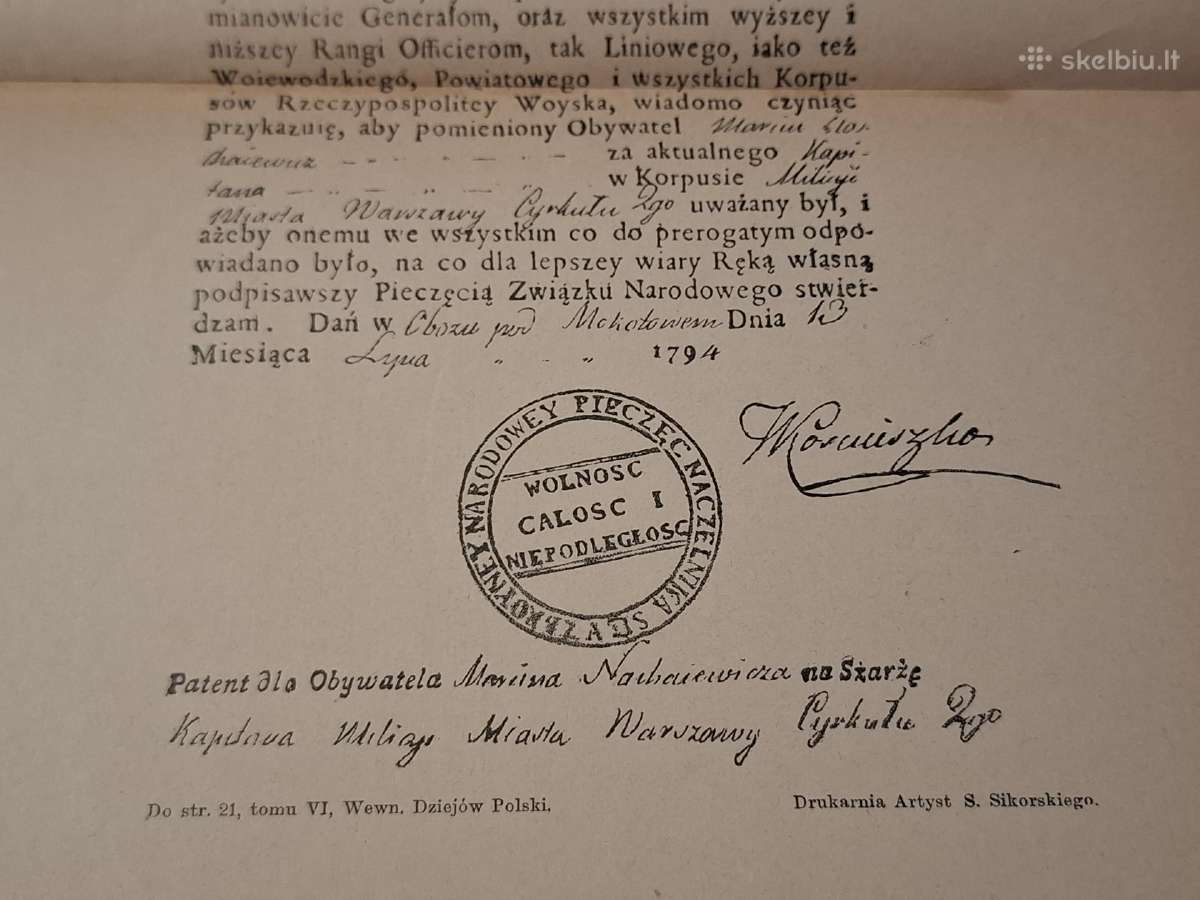 mianowicie Generałom, oraz wszystkim wyższey i
niższey Rangi Officierom, tak Liniowego, iako też
Woiewodzkiego, Powiatowego i wszystkich Korpu-
sów Rzeczypospolitey Woyska, wiadomo czyniąc
przykazuię, aby pomieniony Obywatel Marcin
za aktualnego Kapi-
tana w Korpusie Milicyi
Miasta Warszawy Cyrkułu 2go uważany był, i
ażeby onemu we wszystkim co do prerogatym odpo-
wiadano było, na co dla lepszey wiary Ręką własną
podpisawszy Pieczęcią Związku Narodowego stwier-
dzam. Dań w Obozu pod Mokotowem Dnia 13
Miesiąca Lipca 1794
PIECZĘC NACZELNIKA SIŁY ZBROYNEY NARODOWEY
WOLNOSC
CAŁOSC I
NIEPODLEGŁOSC
TKosciuszko
Patent dla Obywatela Marcina Nachaiewicza na Szarżę
Kapitana Milicyi Miasta Warszawy Cyrkułu 2go
Do str. 21, tomu VI, Wewn. Dziejów Polski.
Drukarnia Artyst S. Sikorskiego.
skelbiu.lt